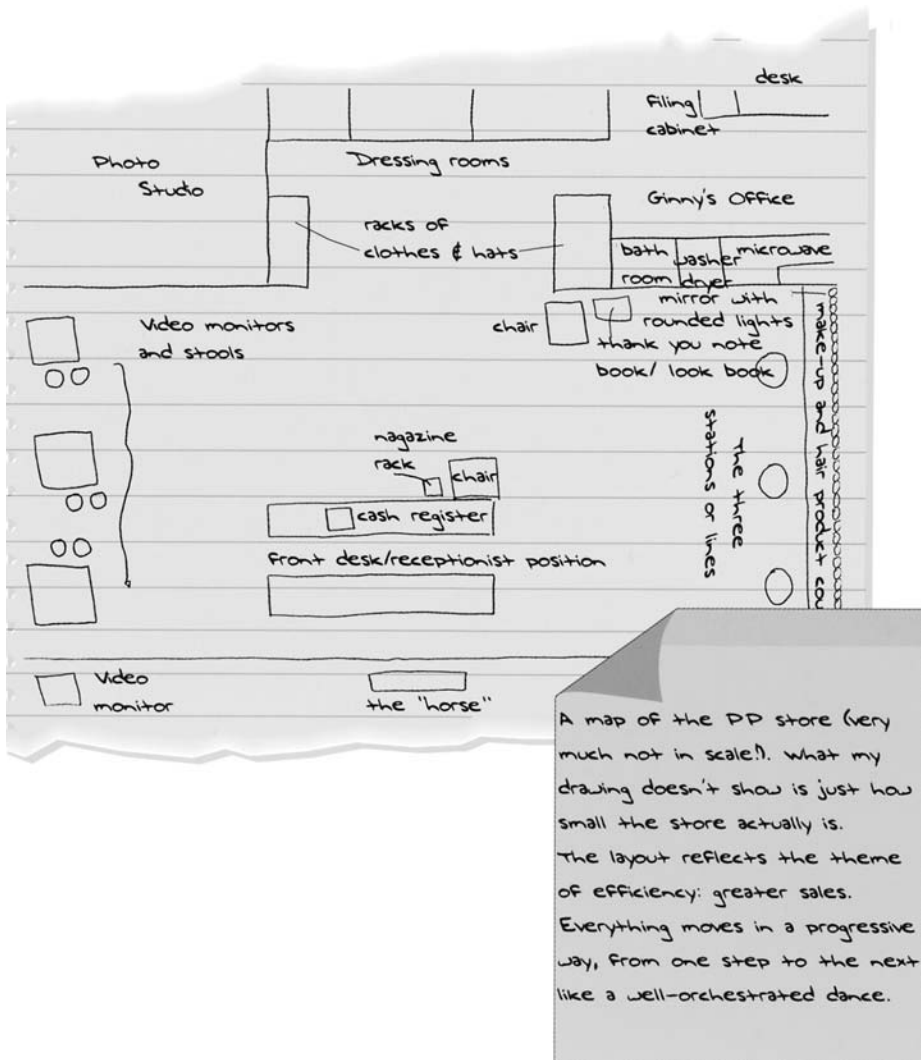 desk
Filing
cabinet
Photo
Studio
Dressing rooms
Ginny's Office
racks of
clothes & hats
bath
room
washer
dryer
microwave
Video monitors
and stools
chair
mirror with
rounded lights
thank you note
book/ look book
make-up and hair product cou
The three
stations or lines
nagazine
rack
chair
cash register
Front desk/receptionist position
Video
monitor
the "horse"
A map of the PP store (very
much not in scale!). What my
drawing doesn't show is just how
small the store actually is.
The layout reflects the theme
of efficiency: greater sales.
Everything moves in a progressive
way, from one step to the next
like a well-orchestrated dance.